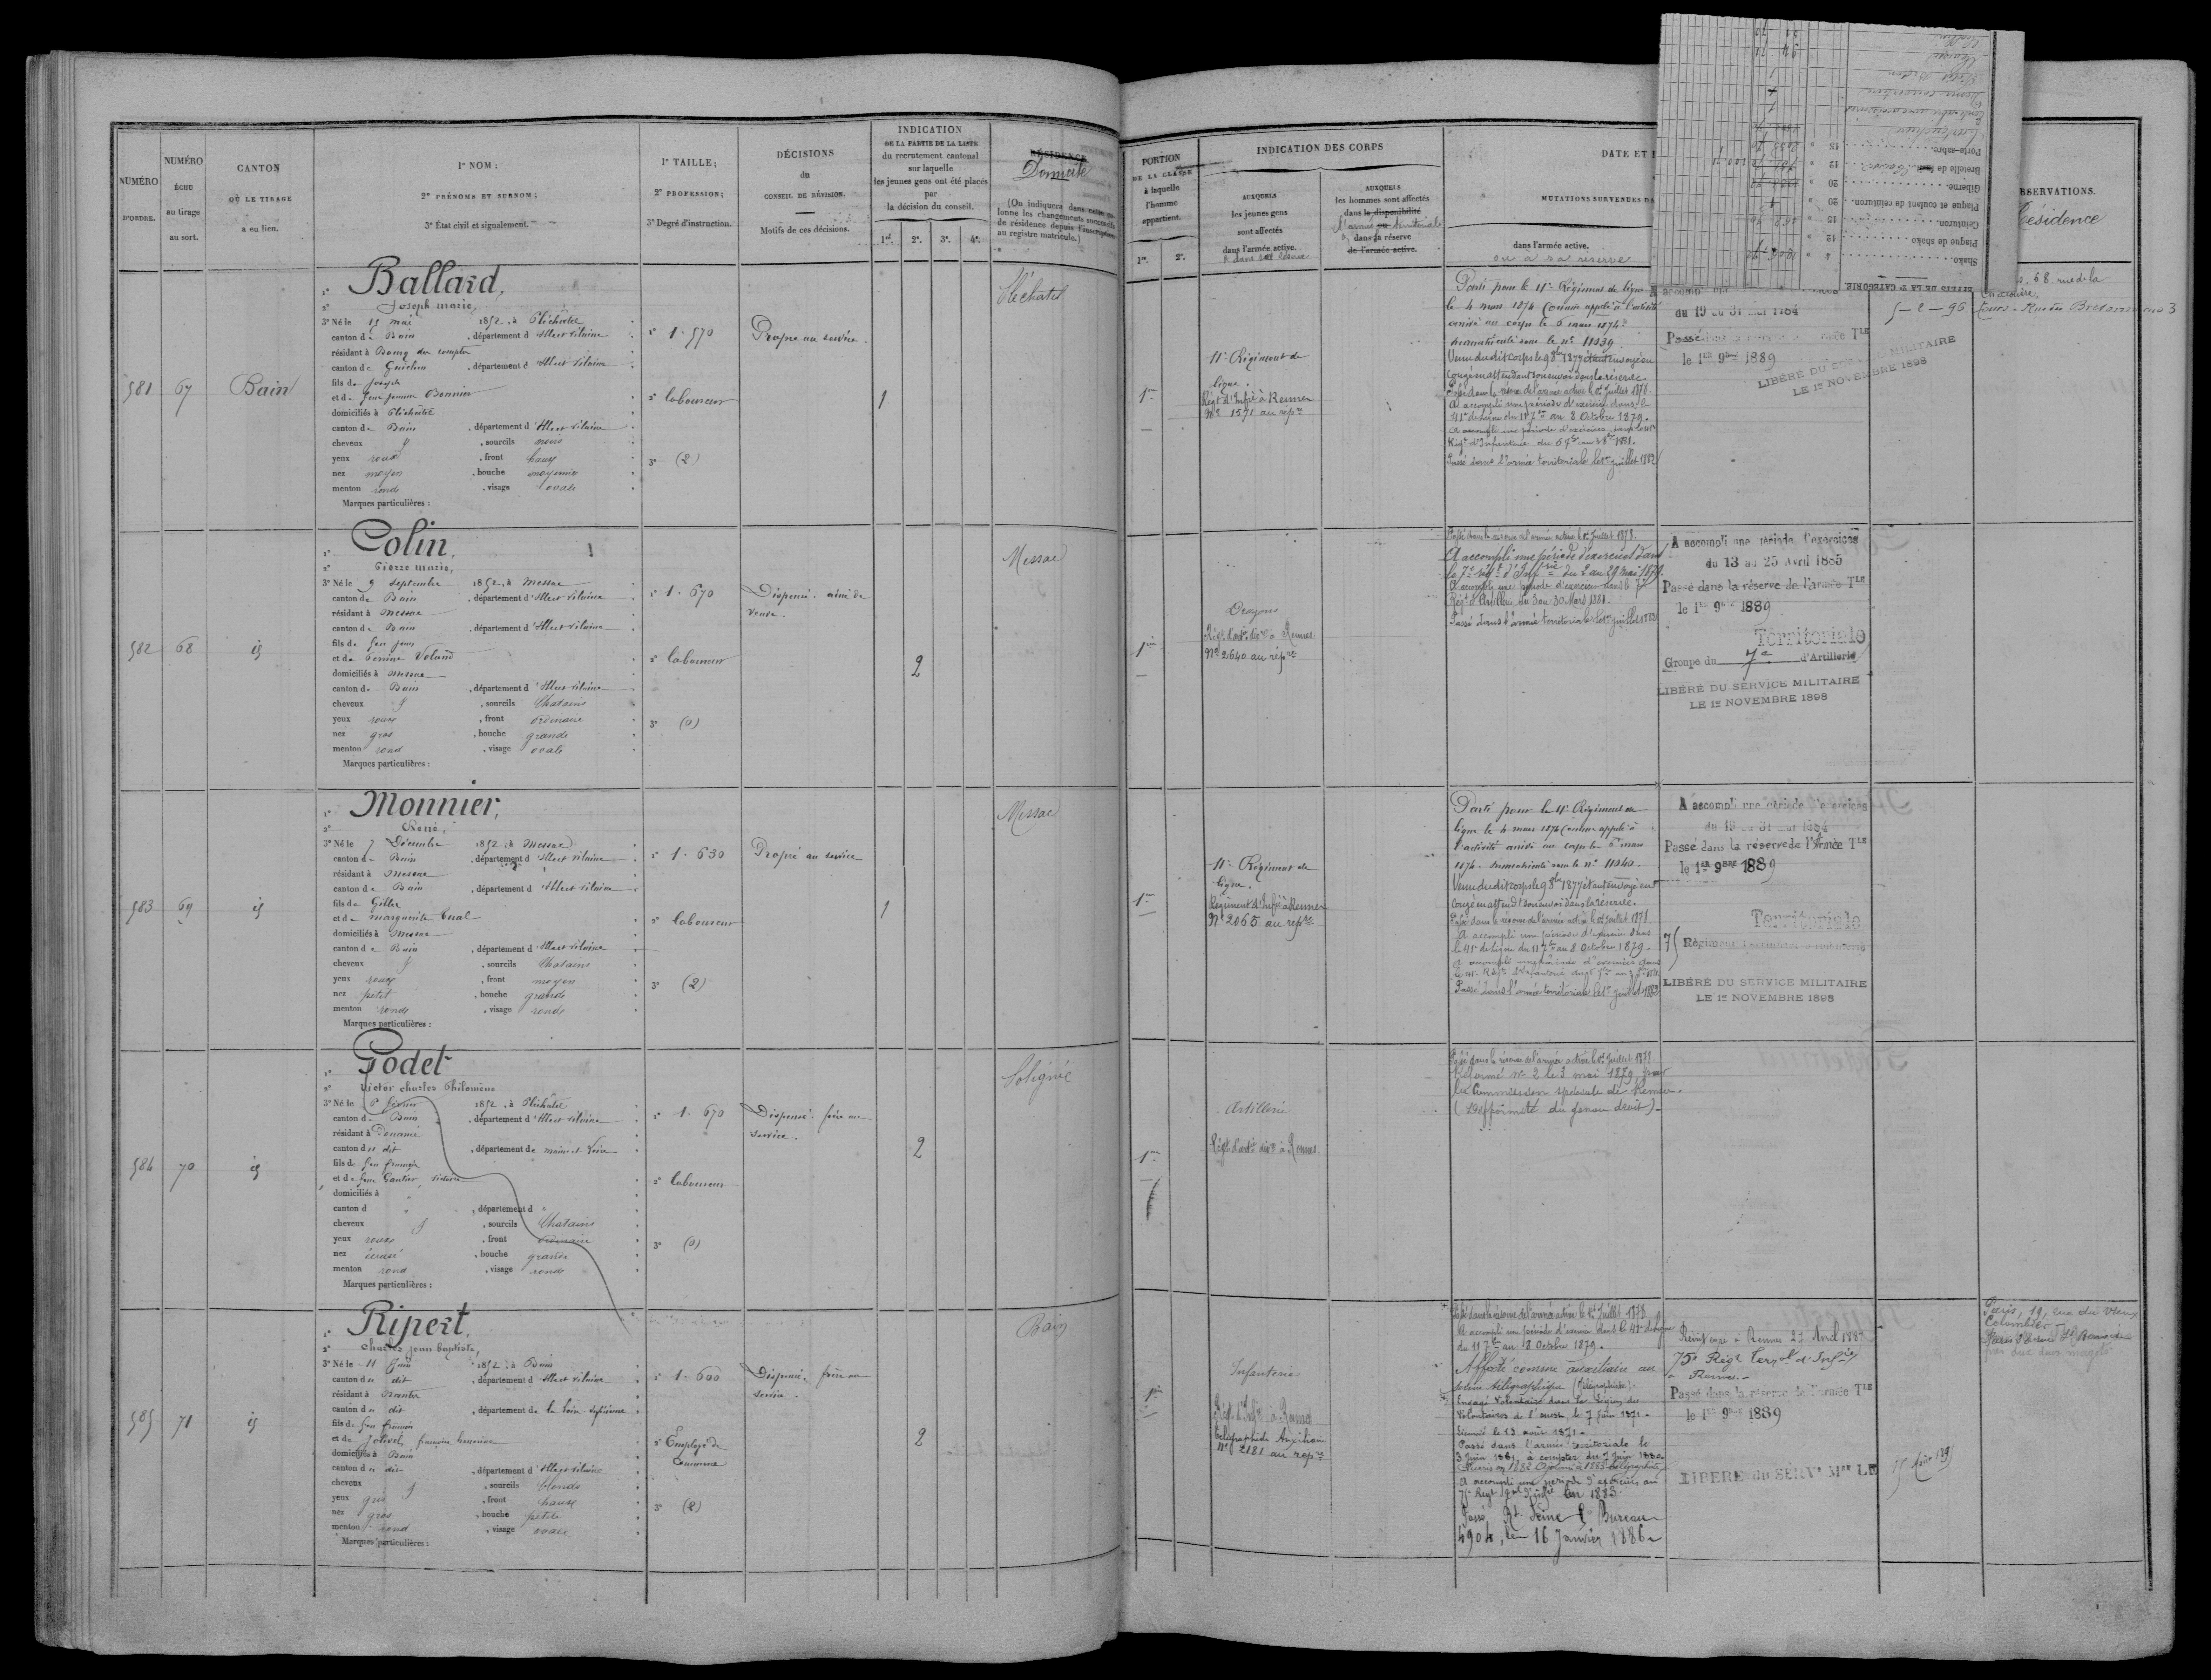 NUMÉRO
D'ORDRE.
NUMÉRO
ÉCHU
au tirage
au sort.
CANTON
OÙ LE TIRAGE
a eu lieu.
1º NOM;
2º PRÉNOMS ET SURNOM;
3º État civil et signalement.
1º TAILLE;
2º PROFESSION;
3º Degré d'instruction.
DÉCISIONS
du
CONSEIL DE RÉVISION.
Motifs de ces décisions.
INDICATION
DE LA PARTIE DE LA LISTE
du recrutement cantonal
sur laquelle
les jeunes gens ont été placés
par
la décision du conseil.
1re. 2e. 3e. 4e.
RÉSIDENCE
Domicile
(On indiquera dans cette co-
lonne les changements successifs
de résidence depuis l'inscription
au registre matricule.)
581
67
Bain
1º Ballard,
2º Joseph marie,
3º Né le 15 mai 1852, à Pléchâtel
canton de Bain, département d'Ille et Vilaine
résidant à Bourg des comptes
canton de Guichen, département d'Ille et Vilaine
fils de Joseph
et de Bonnin
domiciliés à Pléchâtel
canton de Bain, département d'Ille et Vilaine
cheveux, sourcils noirs
yeux roux, front haut
nez moyen, bouche moyenne
menton rond, visage ovale
Marques particulières :
1º 1.570
2º laboureur
3º (2)
Propre au service.
1
Pléchatel
582
68
id
1º Colin,
2º Pierre marie,
3º Né le 9 septembre 1852, à Messac
canton de Bain, département d'Ille et Vilaine
résidant à Messac
canton de Bain, département d'Ille et Vilaine
fils de feu Jean
et de Perrine Voland
domiciliés à Messac
canton de Bain, département d'Ille et Vilaine
cheveux, sourcils Chatains
yeux roux, front ordinaire
nez gros, bouche grande
menton rond, visage ovale
Marques particulières :
1º 1.670
2º laboureur
3º (0)
Dispensé. aîné de
veuve.
2
Messac
583
69
id
1º Monnier,
2º René,
3º Né le 7 Décembre 1852, à Messac
canton de Bain, département d'Ille et Vilaine
résidant à Messac
canton de Bain, département d'Ille et Vilaine
fils de Gilles
et de marguerite Tual
domiciliés à Messac
canton de Bain, département d'Ille et Vilaine
cheveux, sourcils Chatains
yeux roux, front moyen
nez petit, bouche grande
menton rond, visage rond
Marques particulières :
1º 1.630
2º laboureur
3º (2)
Propre au service
1
Messac
584
70
id
1º Godet
2º Victor charles Philomène
3º Né le février 1852, à Pléchâtel
canton de Bain, département d'Ille et Vilaine
résidant à
canton du dit, département de maine et Loire
fils de feu françois
et de feue Gautier, victoire
domiciliés à
canton d, département d
cheveux, sourcils Chatains
yeux roux, front ordinaire
nez écrasé, bouche grande
menton rond, visage rond
Marques particulières :
1º 1.670
2º laboureur
3º (0)
Dispensé. frère au
service.
2
Poligné
585
71
id
1º Ripert,
2º charles jean baptiste,
3º Né le 11 Juin 1852, à Bain
canton du dit, département d'Ille et Vilaine
résidant à Nantes
canton du dit, département de la Loire inférieure
fils de feu françois
et de Jolivel, françoise
domiciliés à Bain
canton du dit, département d'Ille et Vilaine
cheveux, sourcils blonds
yeux gris, front haut
nez gros, bouche petite
menton rond, visage ovale
Marques particulières :
1º 1.600
2º Employé de
Commerce
3º (2)
Dispensé. frère au
service.
2
Bain
PORTION
DE LA CLASSE
à laquelle
l'homme
appartient.
1re. 2e.
INDICATION DES CORPS
AUXQUELS
les jeunes gens
sont affectés
dans l'armée active.
& dans sa réserve
AUXQUELS
les hommes sont affectés
dans la disponibilité
l'armée territoriale
& dans sa réserve
de l'armée active.
DATE ET
MUTATIONS SURVENUES DA
dans l'armée active.
ou à sa réserve
BSERVATIONS.
Résidence
EFFETS DE LA 2e CATÉGORIE.
Shako
Plaque de shako
Ceinturon
Plaque et coulant de ceinturon
Giberne
Bretelle de fusil
Porte-sabre
1re
11e Régiment de
ligne.
Régt d'Infie à Rennes
Nº 1571 au repre
Parti pour le 11e Régiment de ligne
le 4 mars 1874 Comme appelé à l'activité
arrivé au corps le 6 mars 1874.
immatriculé sous le nº 11039.
Venu dudit corps le 9 8bre 1877 étant envoyé en
congé en attendant son envoi dans la réserve.
Passé dans la réserve de l'armée active le 1er Juillet 1878.
A accompli une période d'exercice dans le
41e de ligne du 11 7bre au 8 Octobre 1879.
A accompli une période d'exercices dans le 41e
Régt d'Infanterie du 1881.
Passé dans l'armée territoriale le 1er juillet 1882
du 19 au 31 mai 1884
Passé dans la réserve de l'armée TLE
le 1er 9bre 1889
LIBÉRÉ DU SERVICE MILITAIRE
LE 1er NOVEMBRE 1898
68 rue de la
5-2-96 Tours - Rue 3
1re
Dragons
Régt d'artie divre à Rennes
Nº 2640 au répre
Passé dans la réserve de l'armée active le 1er Juillet 1878.
A accompli une période d'exercices dans
le 7e régt d'Artie du 2 au 29 mai 1879.
A accompli une période d'exercices dans le 7e
Régt d'Artillerie du 3 au 30 Mars 1881.
Passé dans l'armée territoriale le 1er juillet 1882
A accompli une période d'exercices
du 13 au 25 Avril 1885
Passé dans la réserve de l'armée TLE
le 1er 9bre 1889
Territoriale
Groupe du 7e d'Artillerie
LIBÉRÉ DU SERVICE MILITAIRE
LE 1er NOVEMBRE 1898
1re
11e Régiment de
ligne.
Régiment d'Infie à Rennes
Nº 2065 au repre
Parti pour le 11e Régiment de
ligne le 4 mars 1874 Comme appelé à
l'activité arrivé au corps le 6 mars
1874. immatriculé sous le nº 11040.
Venu dudit corps le 9 8bre 1877 étant envoyé en
Congé en attendt son envoi dans la réserve.
Passé dans la réserve de l'armée active le 1er Juillet 1878
A accompli une période d'exercice dans
le 41e de ligne du 11 7bre au 8 Octobre 1879.
A accompli une période d'exercices dans
le 41e Régt d'Infanterie
Passé dans l'armée territoriale le 1er juillet 1882
A accompli une période d'exercices
du 19 au 31 mai 1884
Passé dans la réserve de l'Armée TLE
le 1er 9bre 1889
Territoriale
75 Régiment d'Infanterie
LIBÉRÉ DU SERVICE MILITAIRE
LE 1er NOVEMBRE 1898
1re
Artillerie
Régt d'artie divre à Rennes
Passé dans la réserve de l'armée active le 1er Juillet 1878.
Réformé nº 2 le 3 mai 1879, par
la Commission spéciale de Rennes.
(Difformité du genou droit)
1re
Infanterie
Régt d'Infie à Rennes
Télégraphiste Auxiliaire
Nº 2181 au repre
Passé dans la réserve de l'armée active le 1er Juillet 1878
A accompli une période d'exercice dans le 41e de ligne
du 11 7bre au 8 Octobre 1879.
Affecté comme auxiliaire au
service télégraphique (Télégraphiste).
Engagé Volontaire dans la Légion des
Volontaires de l'ouest, le 7 Juin 1871.
Licencié le 13 août 1871.
Passé dans l'armée territoriale le
3 Juin 1881, à compter du 7 Juin 1880
A accompli une période d'exercices au
75e Régt Terral d'Infie en 1883.
Passé Rt Seine Bureau
4904, le 16 Janvier 1886
Réintégré à Rennes 27 Avril 188
75e Régt Terral d'Infie
à Rennes.
Passé dans la réserve de l'armée TLE
le 1er 9bre 1889
LIBÉRÉ du SERVe Mre LE
Paris, 19, rue du Vieux
Colombier